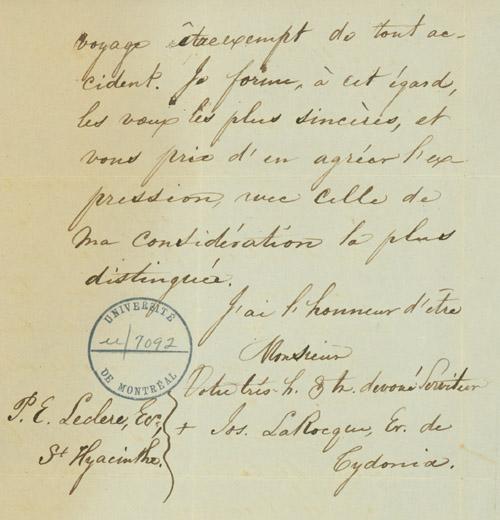 voyage être exempt de tout ac-
cident. Je forme, à cet égard,
les vœux les plus sincères, et
vous prie d'en agréer l'ex
pression, avec celle de
ma considération la plus
distinguée.
J'ai l'honneur d'être
Monsieur
Votre très h. & t. dévoué Serviteur
+ Jos. LaRocque, Ev. de
Cydonia.
P. E. Leclere, Ecr,
St Hyacinthe.
UNIVERSITÉ
u/7092
DE MONTRÉAL